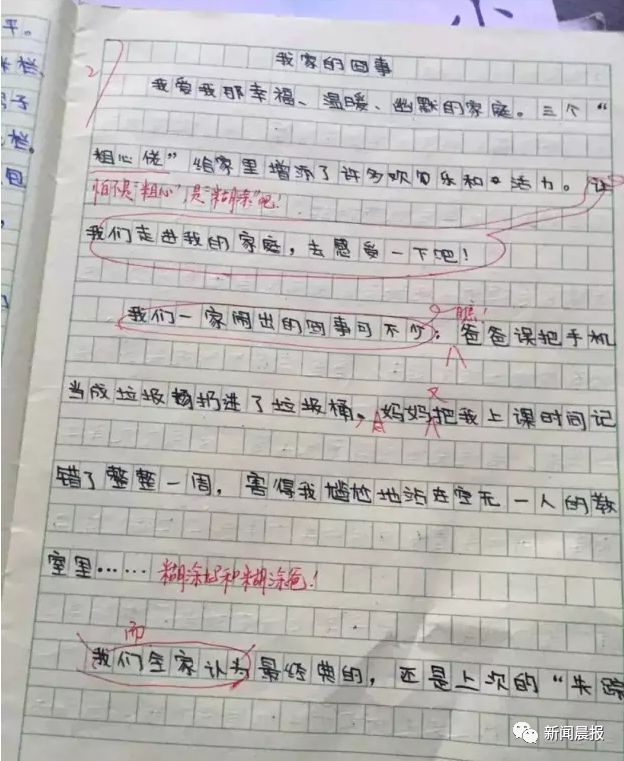 平。
栏
子
栏。
包
我家的囧事
我爱我那幸福、温暖、幽默的家庭。三个“
粗心佬”给家里增添了许多欢乐和活力。让
怕不是“粗心”,是“糊涂”吧!
我们走进我的家庭,去感受一下吧!
瞧!
我们一家闹出的囧事可不少:爸爸误把手机
又
当成垃圾扔进了垃圾桶,妈妈把我上课时间记
错了整整一周,害得我尴尬地站在空无一人的教
室里……糊涂妈和糊涂爸!
而
我们全家认为最经典的,还是上次的“失踪
新闻晨报